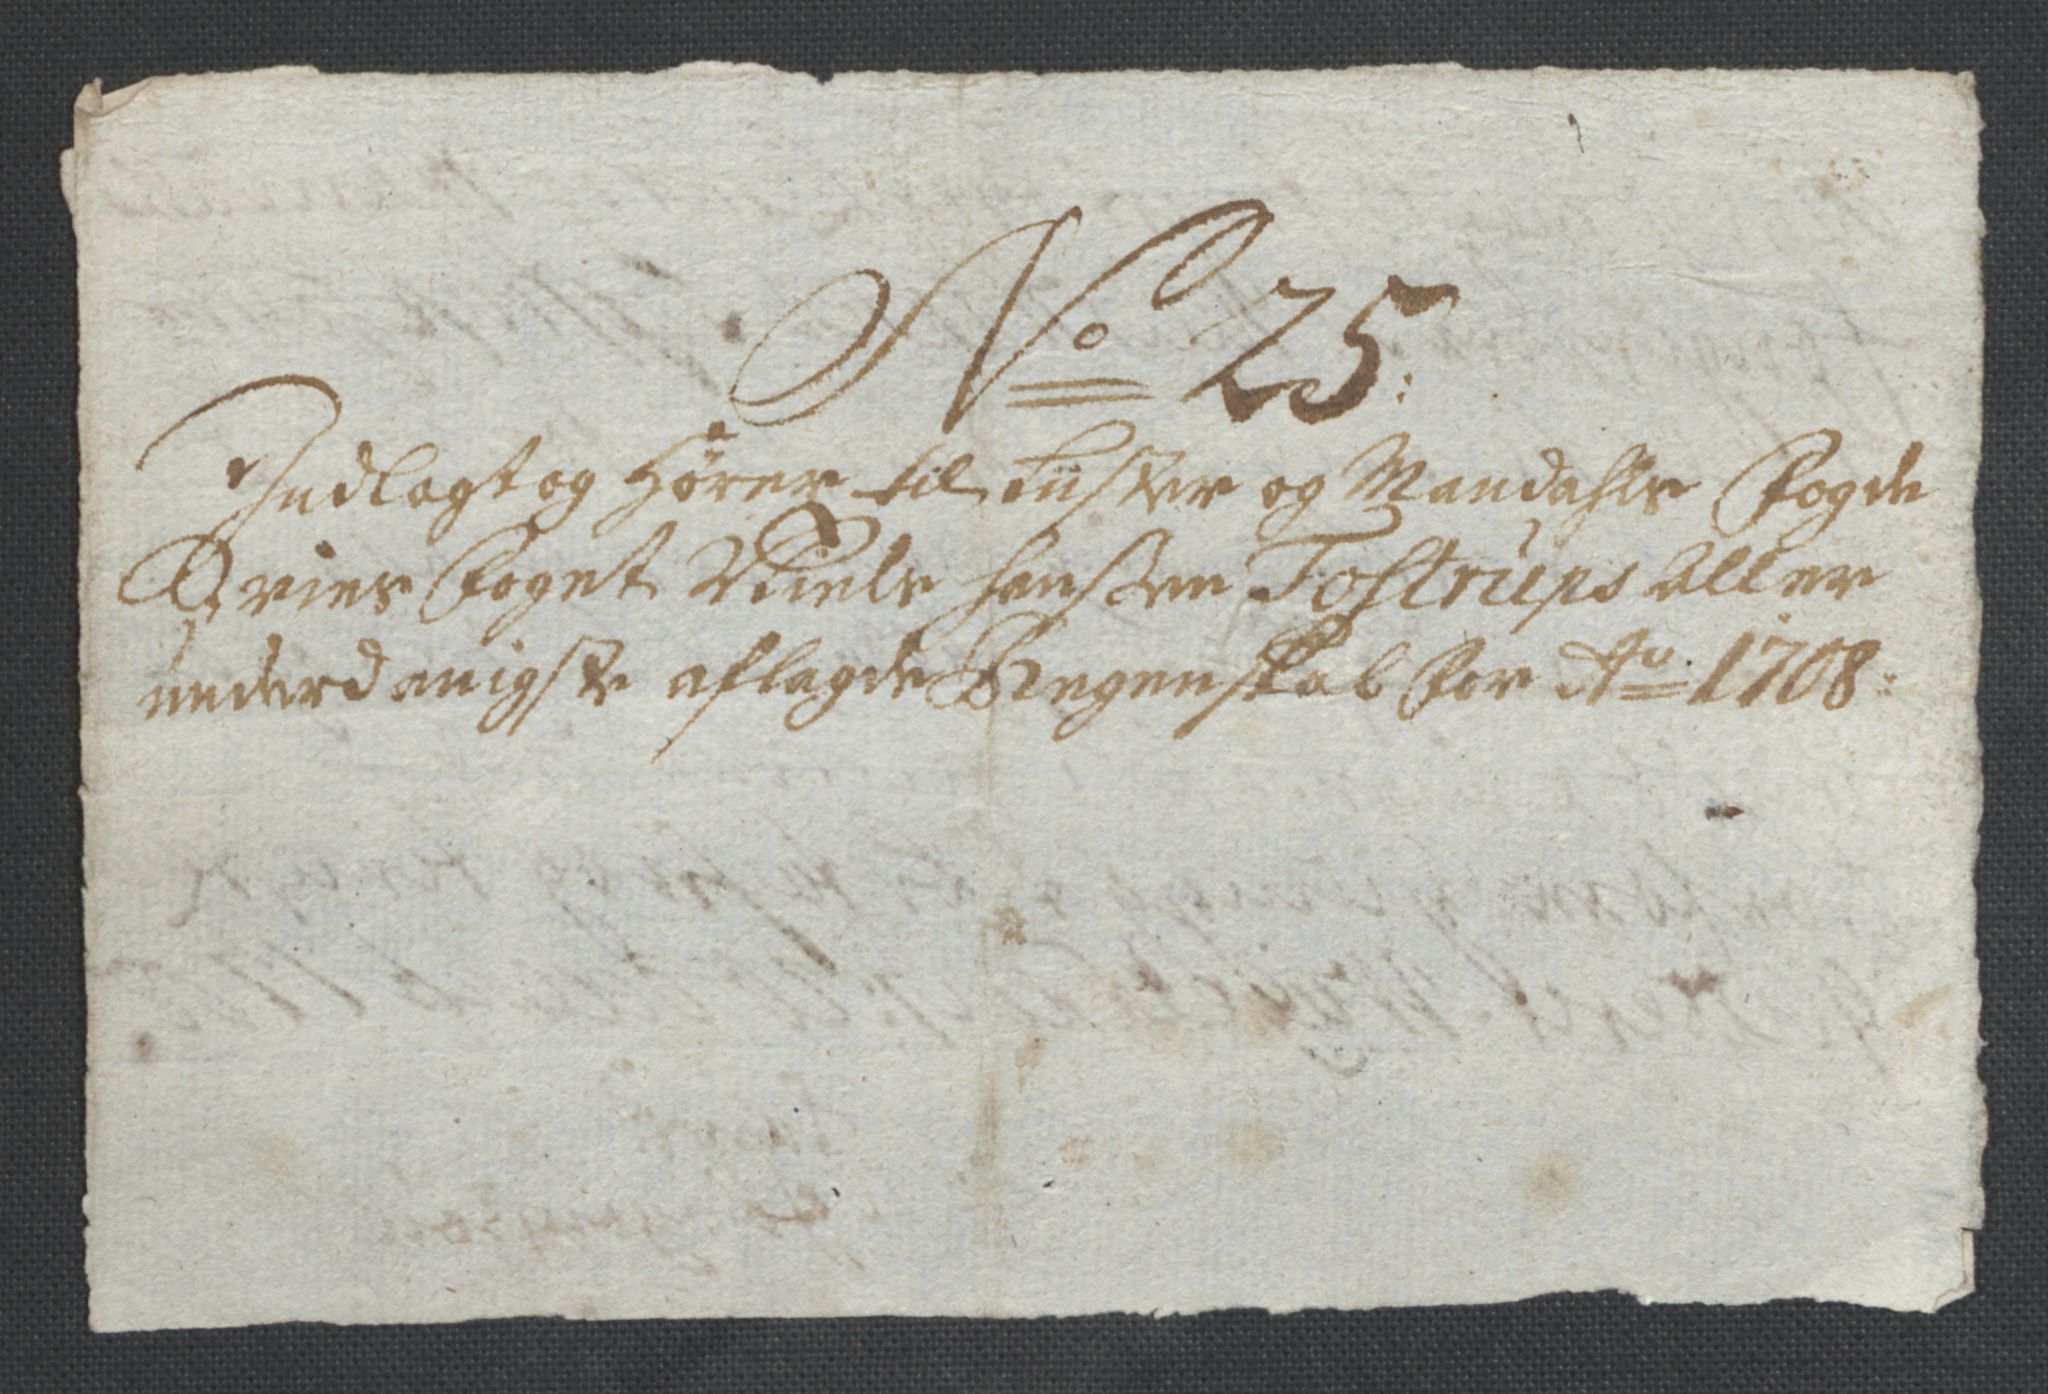 No 25:
Indlagt og Hörer til Lister og Mandahls Fogde
Dries Foget Niels Hanssen Tostrups aller
underdanigste aflagde Regenskab for Ao 1708: